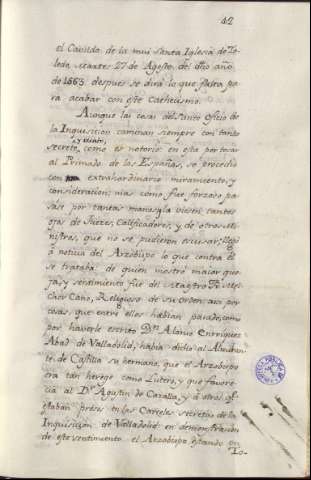 42
el Cavildo de la mui Santa Iglesia de To-
ledo, Martes 27 de Agosto, del dho año
de 1563 despues se dirà lo que falta pa
ra acabar con este Cathecismo.
Aunque las cosas del Santo Oficio de
la Inquisicion caminan siempre con tanto
secreto, y recato, como es notorio en esta por tocar
al Primado de las Españas, se procedio
con extraordinario miramiento, y
consideracion; mas como fue forzado pa
sase por tantas manos, y la viesen tantos
ojos de Juezes, Calificadores, y de otros Mi-
nistros, que no se pudieron escusar; llegò
à noticia del Arzobispo lo que contra èl
se trataba de quien mostrò maior que-
ja, y sentimiento fue del Maestro Fr. Mel-
chor Cano, Religioso de su Orden: assi por
cosas, que entre ellos habian pasado, como
por haverle escrito Dn. Alonso Enrriquez
Abad de Valladolid, havia dicho al Almiran-
te de Castilla su hermano, que el Arzobispo
era tan herege como Lutero, y que favore-
cia al Dr. Agustin de Cazalla, y à otros qe.
estaban presos en las Carceles secretas de la
Inquisicion de Valladolid: en demonstracion
de este sentimiento el Arzobispo estando en
To-